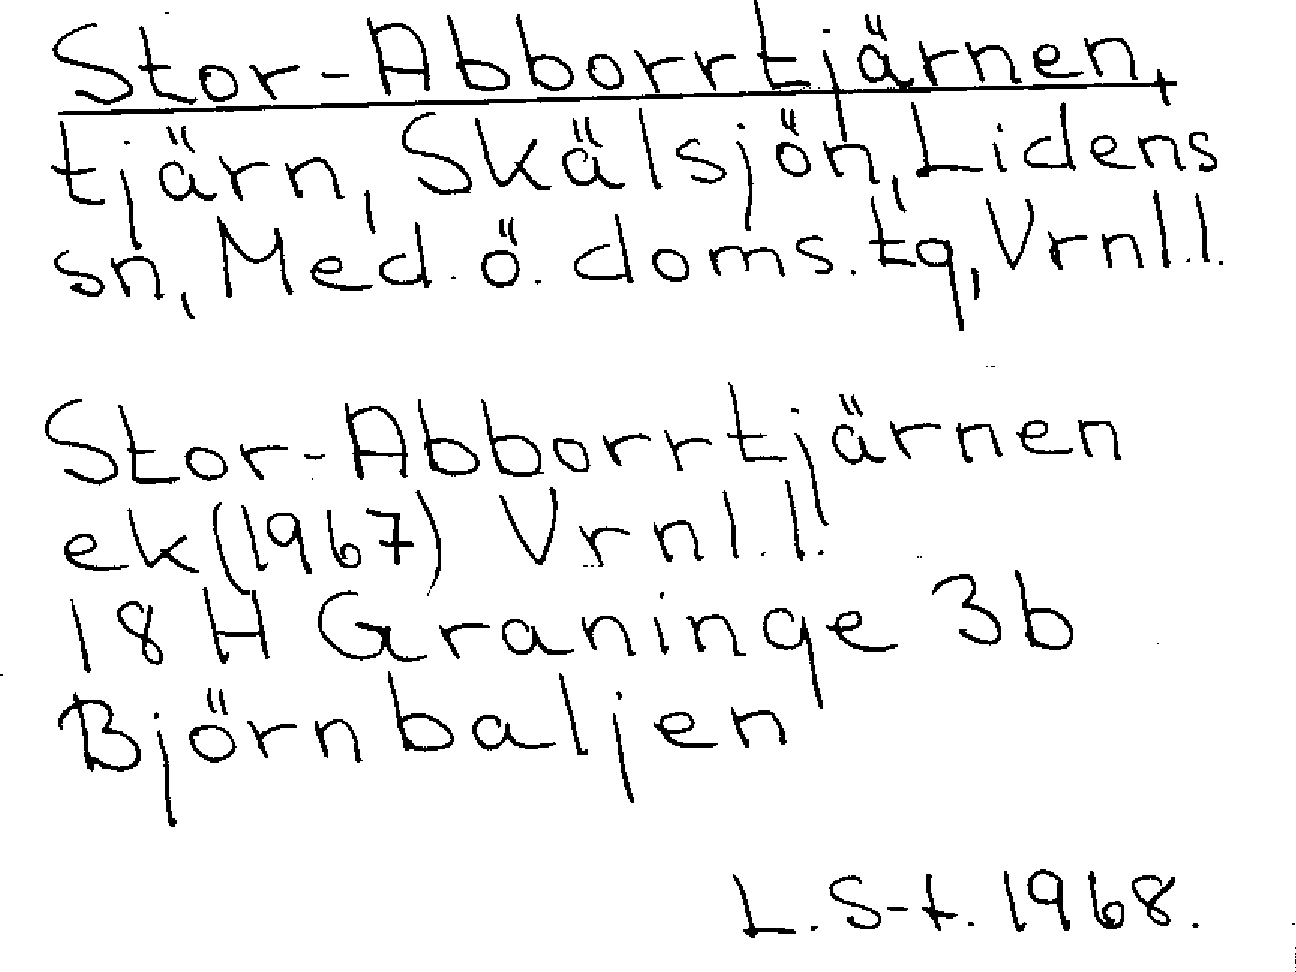 Stor-Abborrtjärnen,
tjärn, Skälsjön, Lidens
sn, Med. ö. doms. tg, Vrnl.l.
Stor-Abborrtjärnen
ek (1967) Vrnl.l.
18 H Graninge 3b
Björnbaljen
L. S-t. 1968.